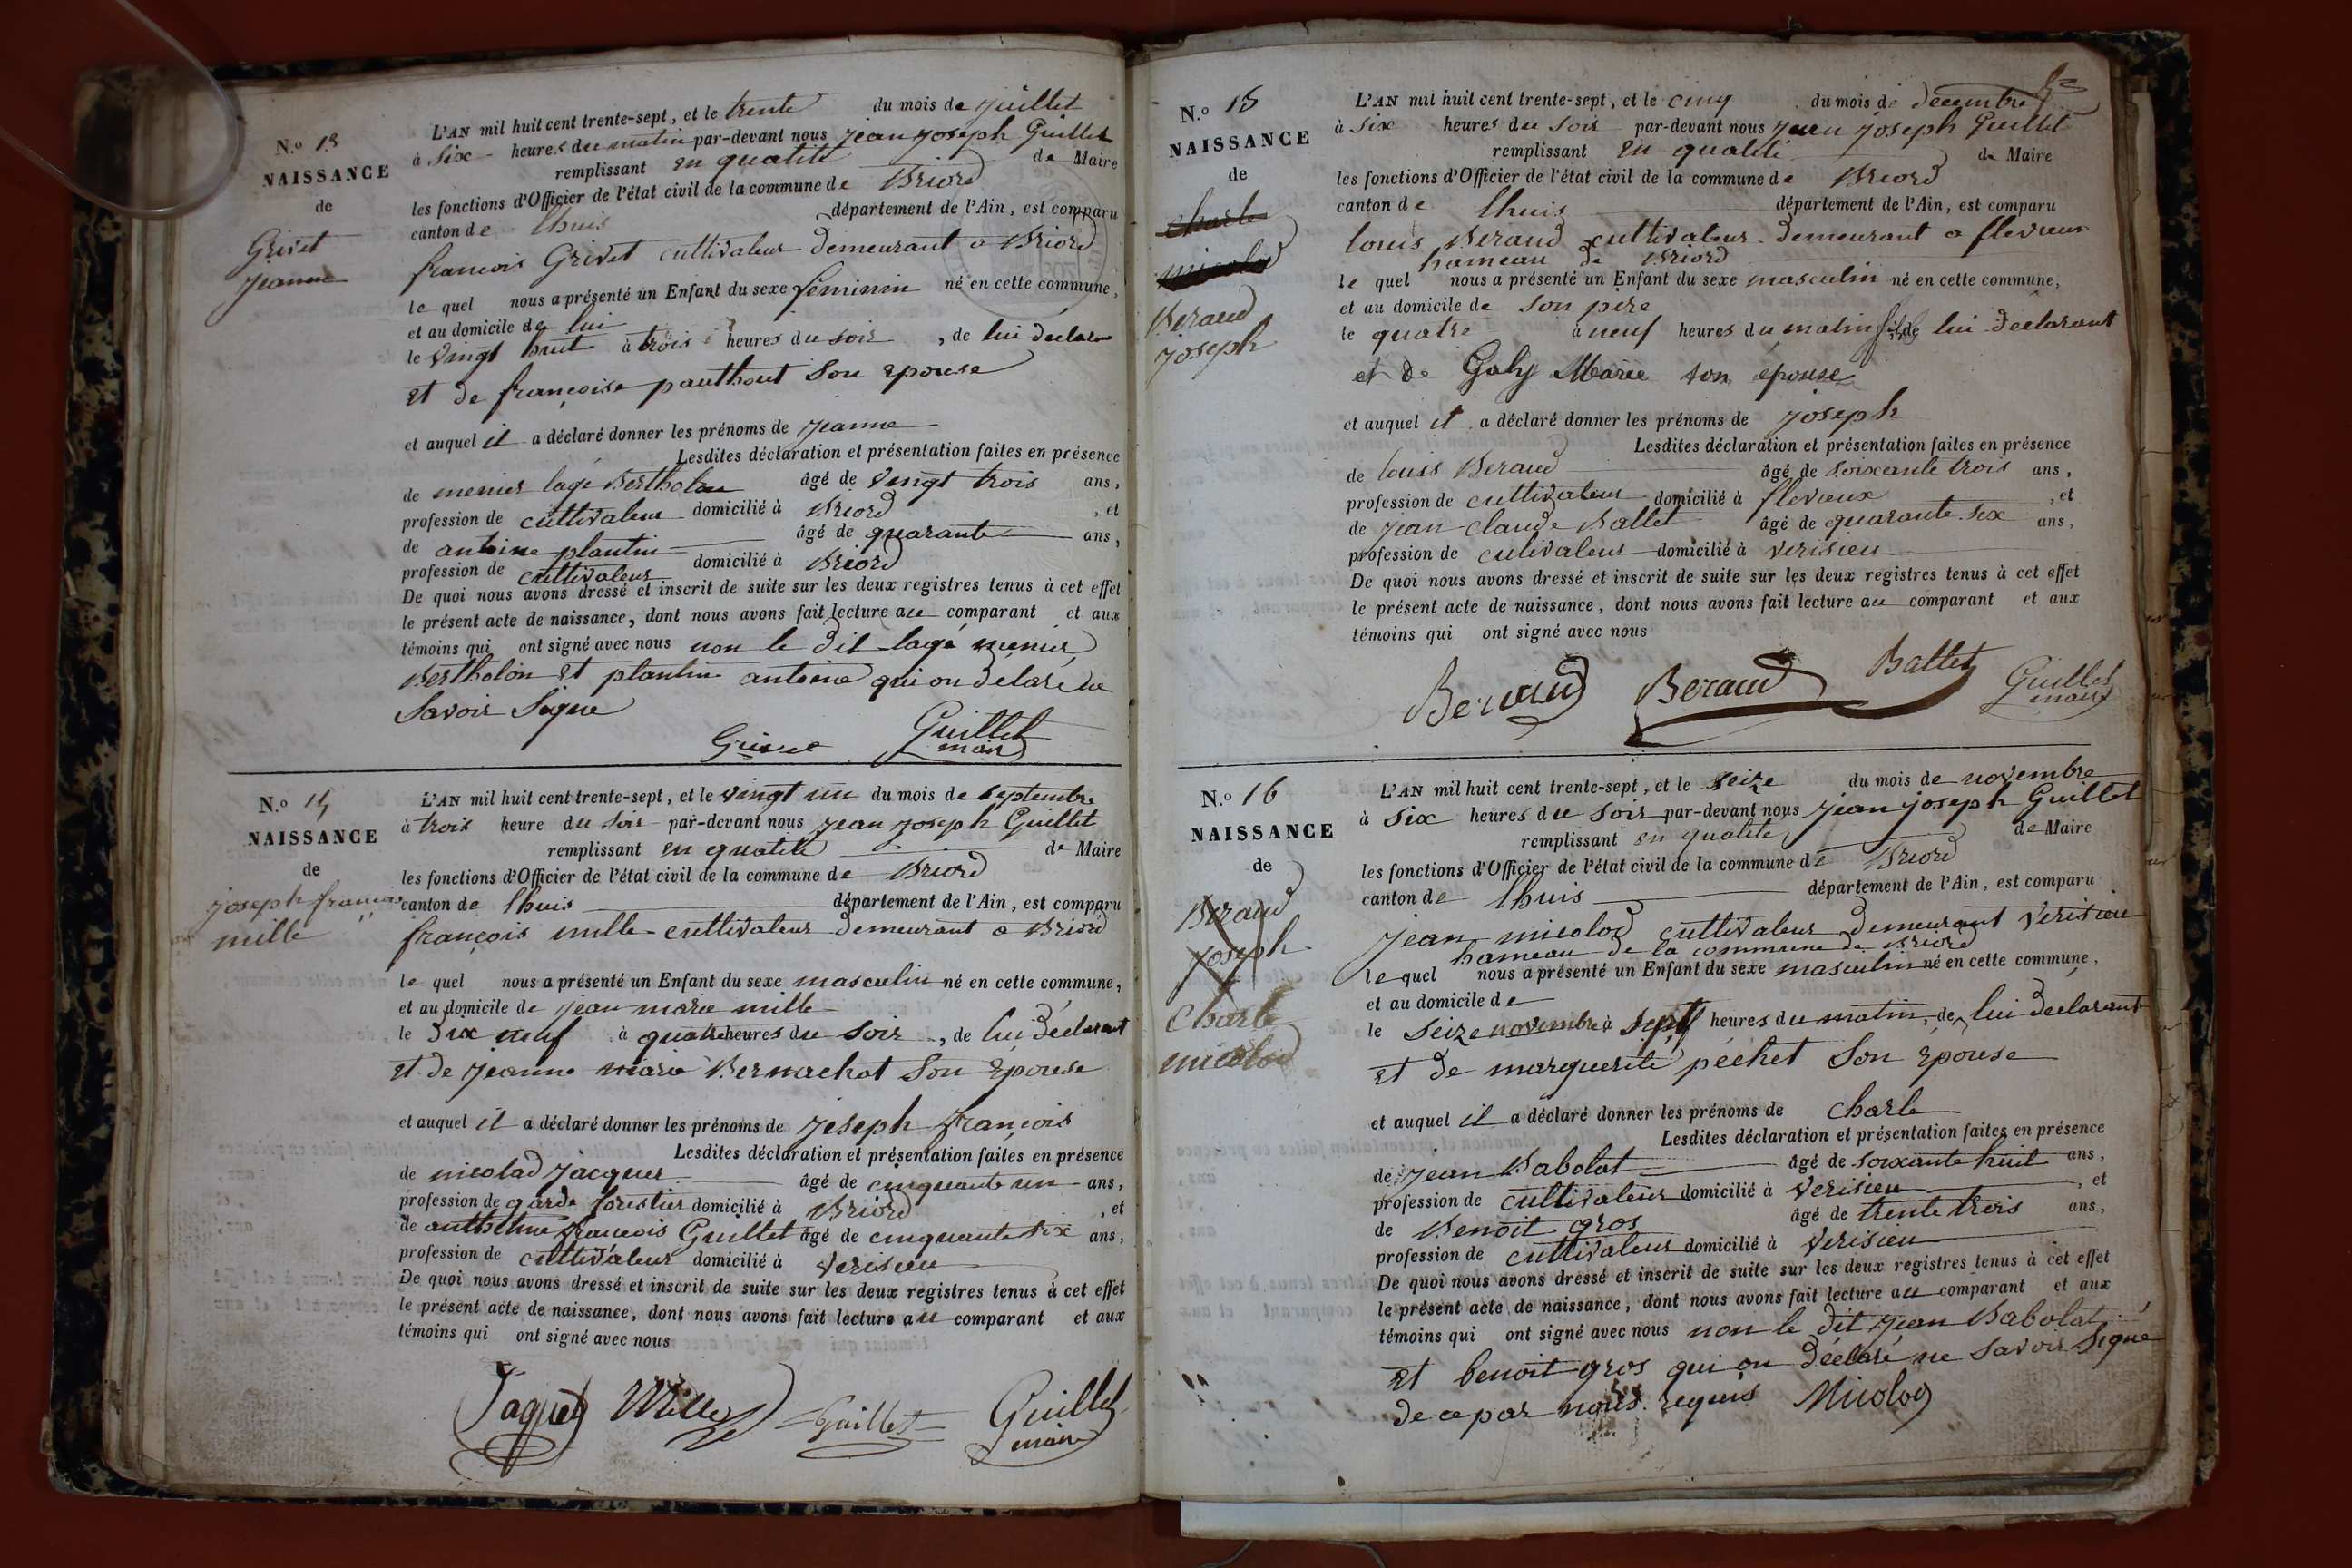 N.o 13
NAISSANCE
de
Grivet
Jeanne
L'AN mil huit cent trente-sept, et le trente du mois de juillet
à six heures du matin par-devant nous jean joseph Guillet
remplissant en qualité de Maire
les fonctions d'Officier de l'état civil de la commune de Briord
canton de lhuis département de l'Ain, est comparu
francois Grivet cultivateur demeurant a Briord
le quel nous a présenté un Enfant du sexe féminin né en cette commune,
et au domicile de lui
le vingt huit à trois heures du soir, de lui declaran
et de françoise panthout son epouse
et auquel il a déclaré donner les prénoms de jeanne
Lesdites déclaration et présentation faites en présence
de menier lagé Bertholon âgé de vingt trois ans,
profession de cultivateur domicilié à Briord, et
de antoine plantin âgé de quarante ans,
profession de cultivateur domicilié à Briord
De quoi nous avons dressé et inscrit de suite sur les deux registres tenus à cet effet
le présent acte de naissance, dont nous avons fait lecture au comparant et aux
témoins qui ont signé avec nous non le dit lagé menier
Bertholon et plantin antoine qui on délaré ne
savoir signe
Grivet Guillet
maire
N.o 14
NAISSANCE
de
joseph françois
mille
L'AN mil huit cent trente-sept, et le vingt un du mois de septembre
à trois heure du soir par-devant nous jean joseph Guillet
remplissant en qualité de Maire
les fonctions d'Officier de l'état civil de la commune de Briord
canton de lhuis département de l'Ain, est comparu
françois mille cultivateur demeurant a Briord
le quel nous a présenté un Enfant du sexe masculin né en cette commune,
et au domicile de jean marie mille
le dix neuf à quatre heures du soir, de lui déclarant
et de jeanne marie Bernachot son épouse
et auquel il a déclaré donner les prénoms de joseph françois
Lesdites déclaration et présentation faites en présence
de micolad jacques âgé de cinquante un ans,
profession de garde forestier domicilié à Briord, et
de anthelme francois Guillet âgé de cinquante six ans,
profession de cultivateur domicilié à verisieu
De quoi nous avons dressé et inscrit de suite sur les deux registres tenus à cet effet
le présent acte de naissance, dont nous avons fait lecture au comparant et aux
témoins qui ont signé avec nous
Jaques Mille Guillet Guillet
maire
N.o 15
NAISSANCE
de
charle
micolod
Beraud
joseph
L'AN mil huit cent trente-sept, et le cinq du mois de decembre
à six heures du soir par-devant nous jean joseph Guillet
remplissant en qualité de Maire
les fonctions d'Officier de l'état civil de la commune de Briord
canton de lhuis département de l'Ain, est comparu
louis Beraud cultivateur demeurant a flevieux
hameau de Briord
le quel nous a présenté un Enfant du sexe masculin né en cette commune,
et au domicile de son père
le quatre à neuf heures du matin fils de lui declarant
et de Galy Marie son épouse
et auquel il a déclaré donner les prénoms de joseph
Lesdites déclaration et présentation faites en présence
de louis Beraud âgé de soixante trois ans,
profession de cultivateur domicilié à flevieux, et
de jean claude Ballet âgé de quarante six ans,
profession de cultivateur domicilié à verisieu
De quoi nous avons dressé et inscrit de suite sur les deux registres tenus à cet effet
le présent acte de naissance, dont nous avons fait lecture au comparant et aux
témoins qui ont signé avec nous
Beraud Beraud Ballet Guillet
maire
N.o 16
NAISSANCE
de
Beraud
joseph
charle
micolod
L'AN mil huit cent trente-sept, et le seize du mois de novembre
à six heures du soir par-devant nous jean joseph Guillet
remplissant en qualité de Maire
les fonctions d'Officier de l'état civil de la commune de Briord
canton de lhuis département de l'Ain, est comparu
jean micolod cultivateur demeurant verisieu
hameau de la commune de Briord
le quel nous a présenté un Enfant du sexe masculin né en cette commune,
et au domicile de
le seize novembre à sept heures du matin, de lui declarant
et de marguerite péchet son épouse
et auquel il a déclaré donner les prénoms de charle
Lesdites déclaration et présentation faites en présence
de jean Babolat âgé de soixante huit ans,
profession de cultivateur domicilié à verisieu, et
de Benoit gros âgé de trente trois ans,
profession de cultivateur domicilié à verisieu
De quoi nous avons dressé et inscrit de suite sur les deux registres tenus à cet effet
le présent acte de naissance, dont nous avons fait lecture au comparant et aux
témoins qui ont signé avec nous non le dit jean Babolat
et benoit gros qui on déclaré ne savoir signe
de ce par nous requis Micolod